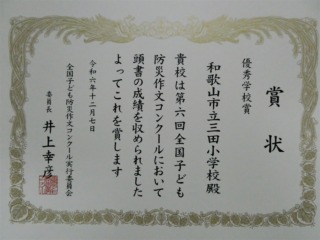 賞状
優秀学校賞
和歌山市立三田小学校殿
貴校は第六回全国子ども
防災作文コンクールにおいて
頭書の成績を収められました
よってこれを賞します
令和六年十二月七日
全国子ども防災作文コンクール実行委員会
委員長 井上幸彦